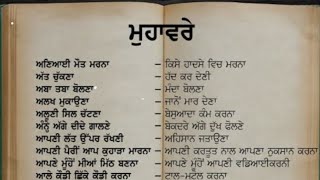 ਮੁਹਾਵਰੇ
ਅਣਿਆਈ ਮੌਤ ਮਰਨਾ – ਕਿਸੇ ਹਾਦਸੇ ਵਿਚ ਮਰਨਾ
ਅੱਤ ਚੁੱਕਣਾ – ਹੱਦ ਕਰ ਦੇਣੀ
ਅਬਾ ਤਬਾ ਬੋਲਣਾ – ਮੰਦਾ ਬੋਲਣਾ
ਅਲਖ ਮੁਕਾਉਣਾ – ਜਾਨੋਂ ਮਾਰ ਦੇਣਾ
ਅਲੂਣੀ ਸਿਲ ਚੱਟਣਾ – ਬੇਸੁਆਦਾ ਕੰਮ ਕਰਨਾ
ਅੰਨ੍ਹੇ ਅੱਗੇ ਦੀਦੇ ਗਾਲਣੇ – ਬੇਕਦਰੇ ਅੱਗੇ ਦੁੱਖ ਫੋਲਣੇ
ਆਪਣੀ ਲੱਤ ਉੱਪਰ ਰੱਖਣੀ – ਅਹਿਸਾਨ ਜਤਾਉਣਾ
ਆਪਣੀ ਪੈਰੀਂ ਆਪ ਕੁਹਾੜਾ ਮਾਰਨਾ – ਆਪਣੀ ਕਰਤੂਤ ਨਾਲ ਆਪਣਾ ਨੁਕਸਾਨ ਕਰਨਾ
ਆਪਣੇ ਮੂੰਹੋਂ ਮੀਆਂ ਮਿੱਠੂ ਬਣਨਾ – ਆਪਣੇ ਮੂੰਹੋਂ ਆਪਣੀ ਵਡਿਆਈਕਰਨੀ
ਆਲੇ ਕੌਡੀ ਛਿੱਕੇ ਕੌਡੀ ਕਰਨਾ – ਟਾਲ-ਮਟੋਲ ਕਰਨਾ